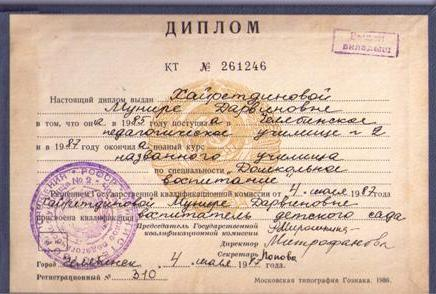 ДИПЛОМ
ВЫДАН
ВКЛАДЫШ
КТ № 261246
Настоящий диплом выдан Хайретдиновой
Мунире Дарвиеновне
в том, что она в 1985 году поступила в Челябинское
педагогическое училище №2
и в 1987 году окончила полный курс
названного училища
по специальности „Дошкольное
воспитание"
Решением Государственной квалификационной комиссии от „4" июля 1987
Хайретдиновой Мунире Дарвиеновне
присвоена квалификация воспитатель детского сада
Председатель Государственной
квалификационной комиссии
Директор Митрофанова
Секретарь Попова
Город Челябинск, 4 июля 1987 года.
Регистрационный № 310
Московская типография Гознака. 1986.